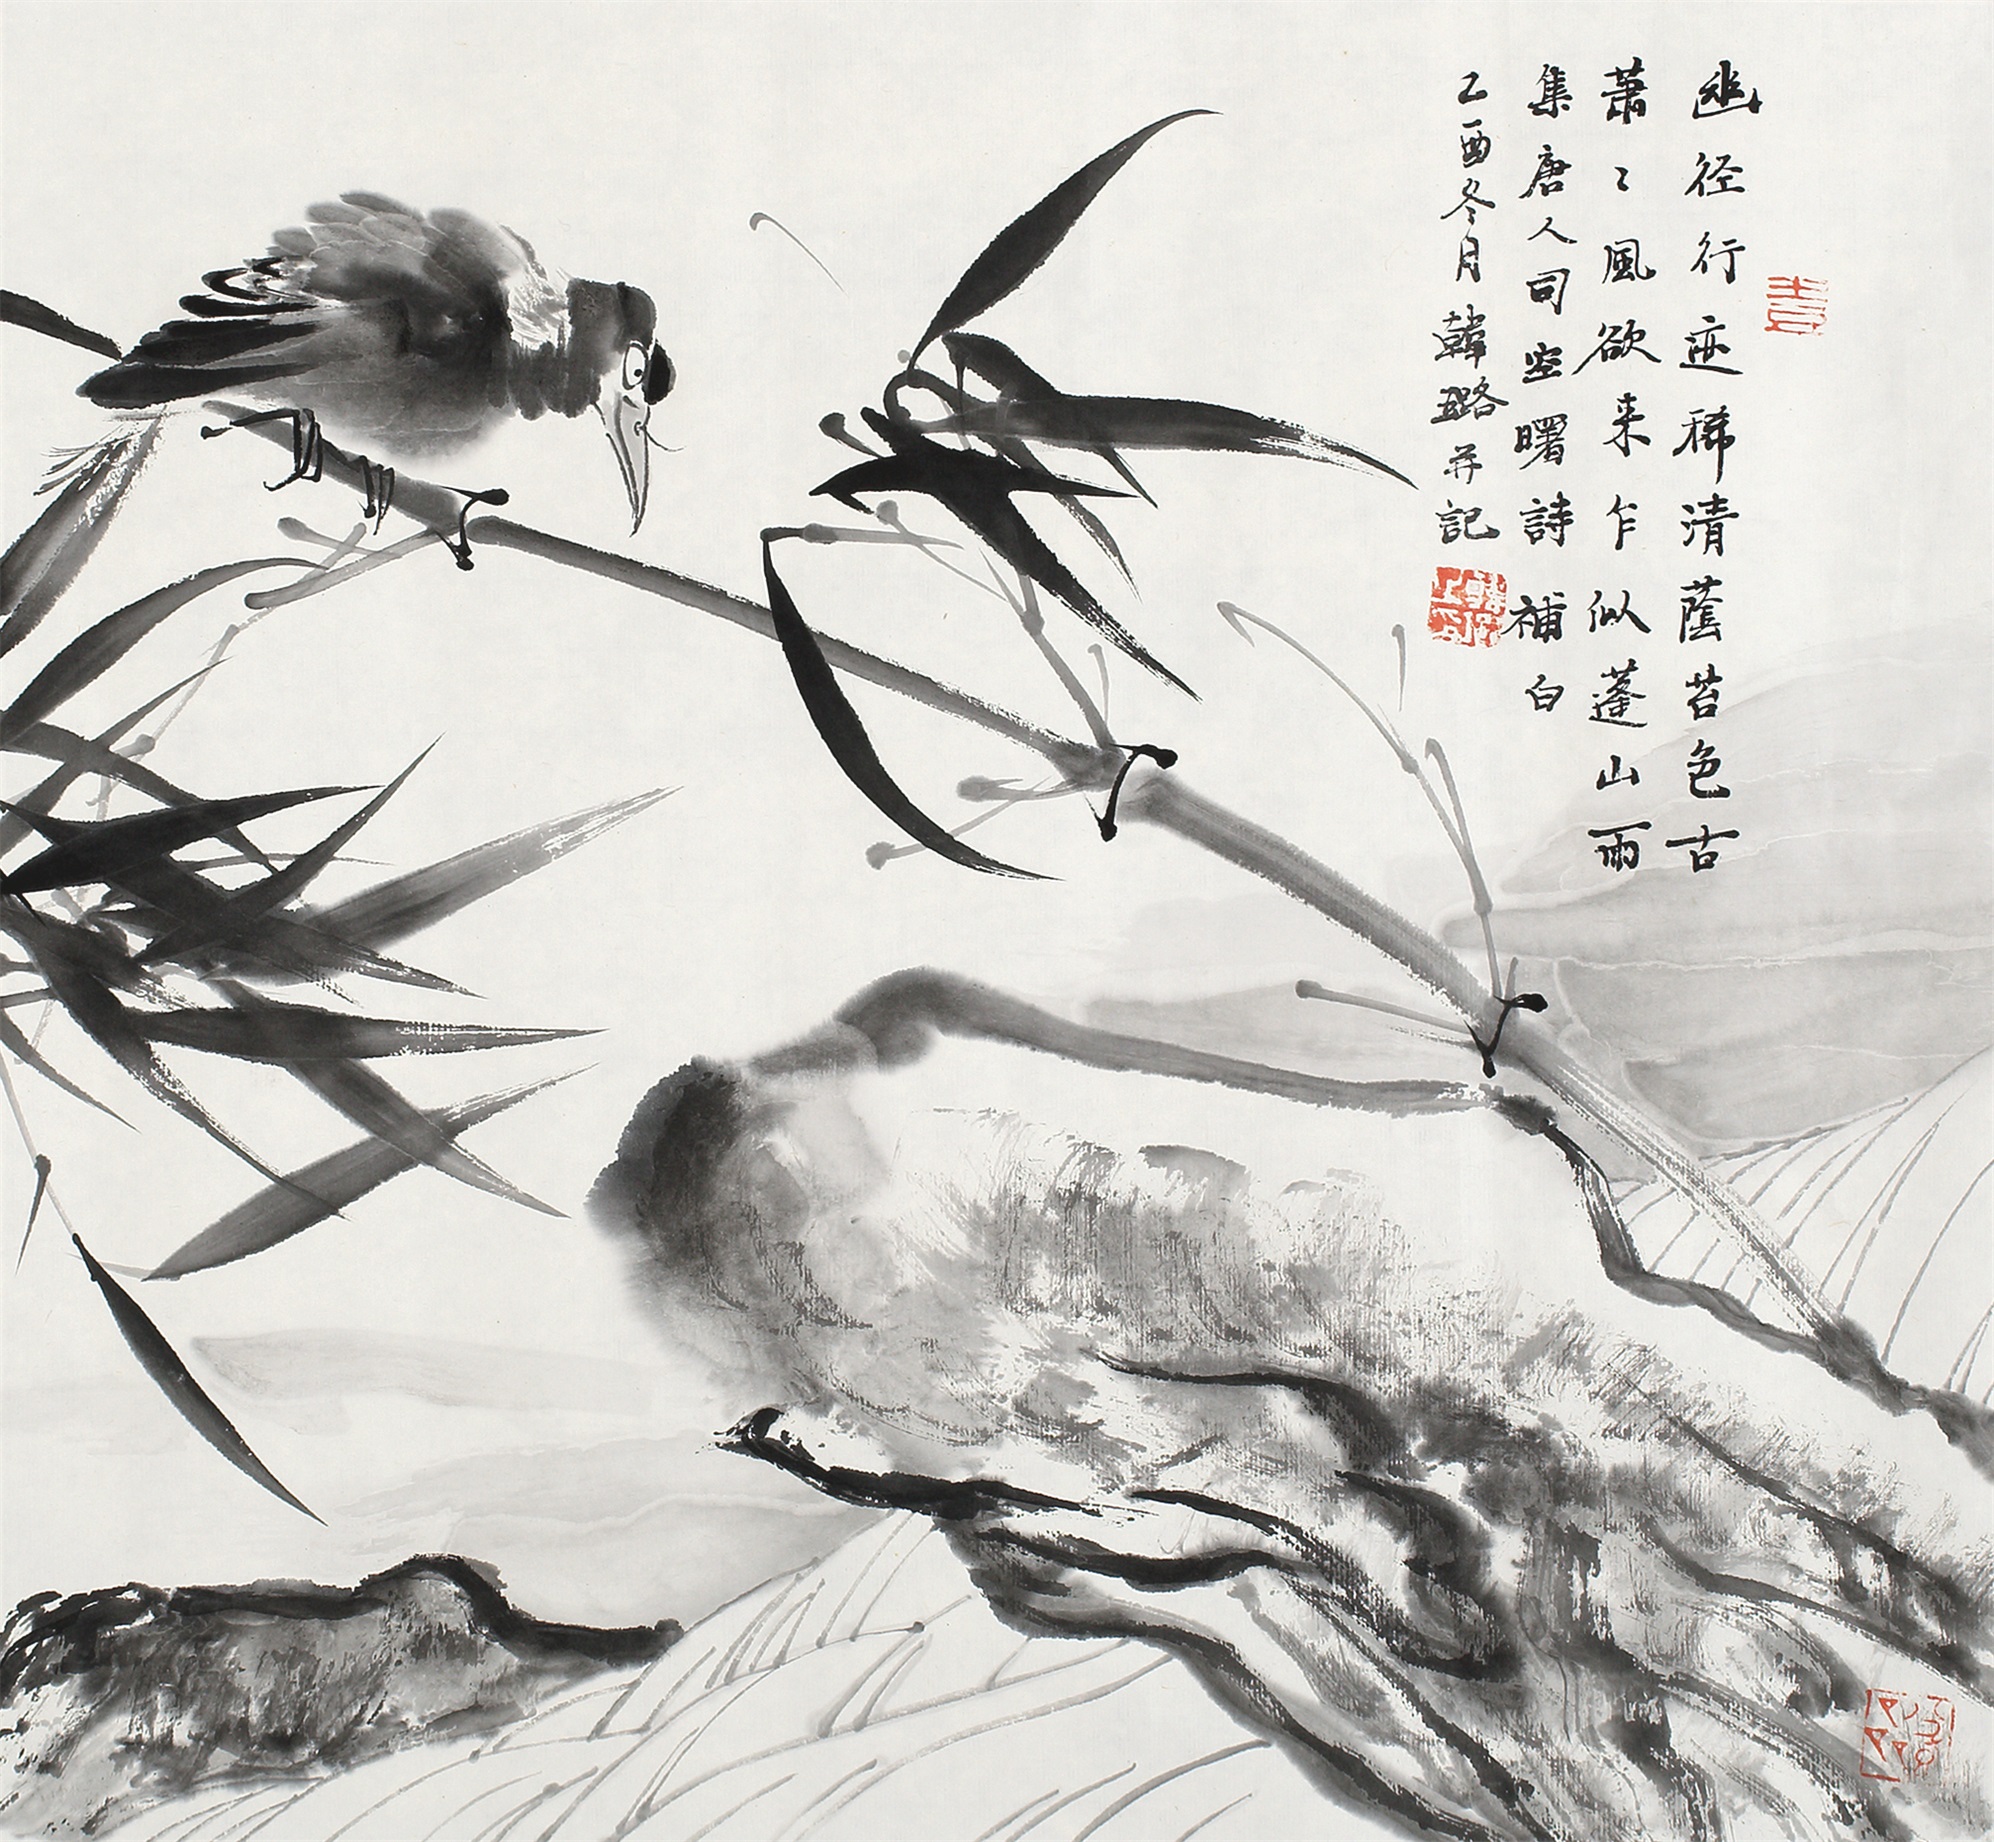 幽径行迹稀清蔭苔色古
蕭〻風欲来乍似蓬山雨
集唐人司空曙詩補白
乙酉冬月韓璐并記